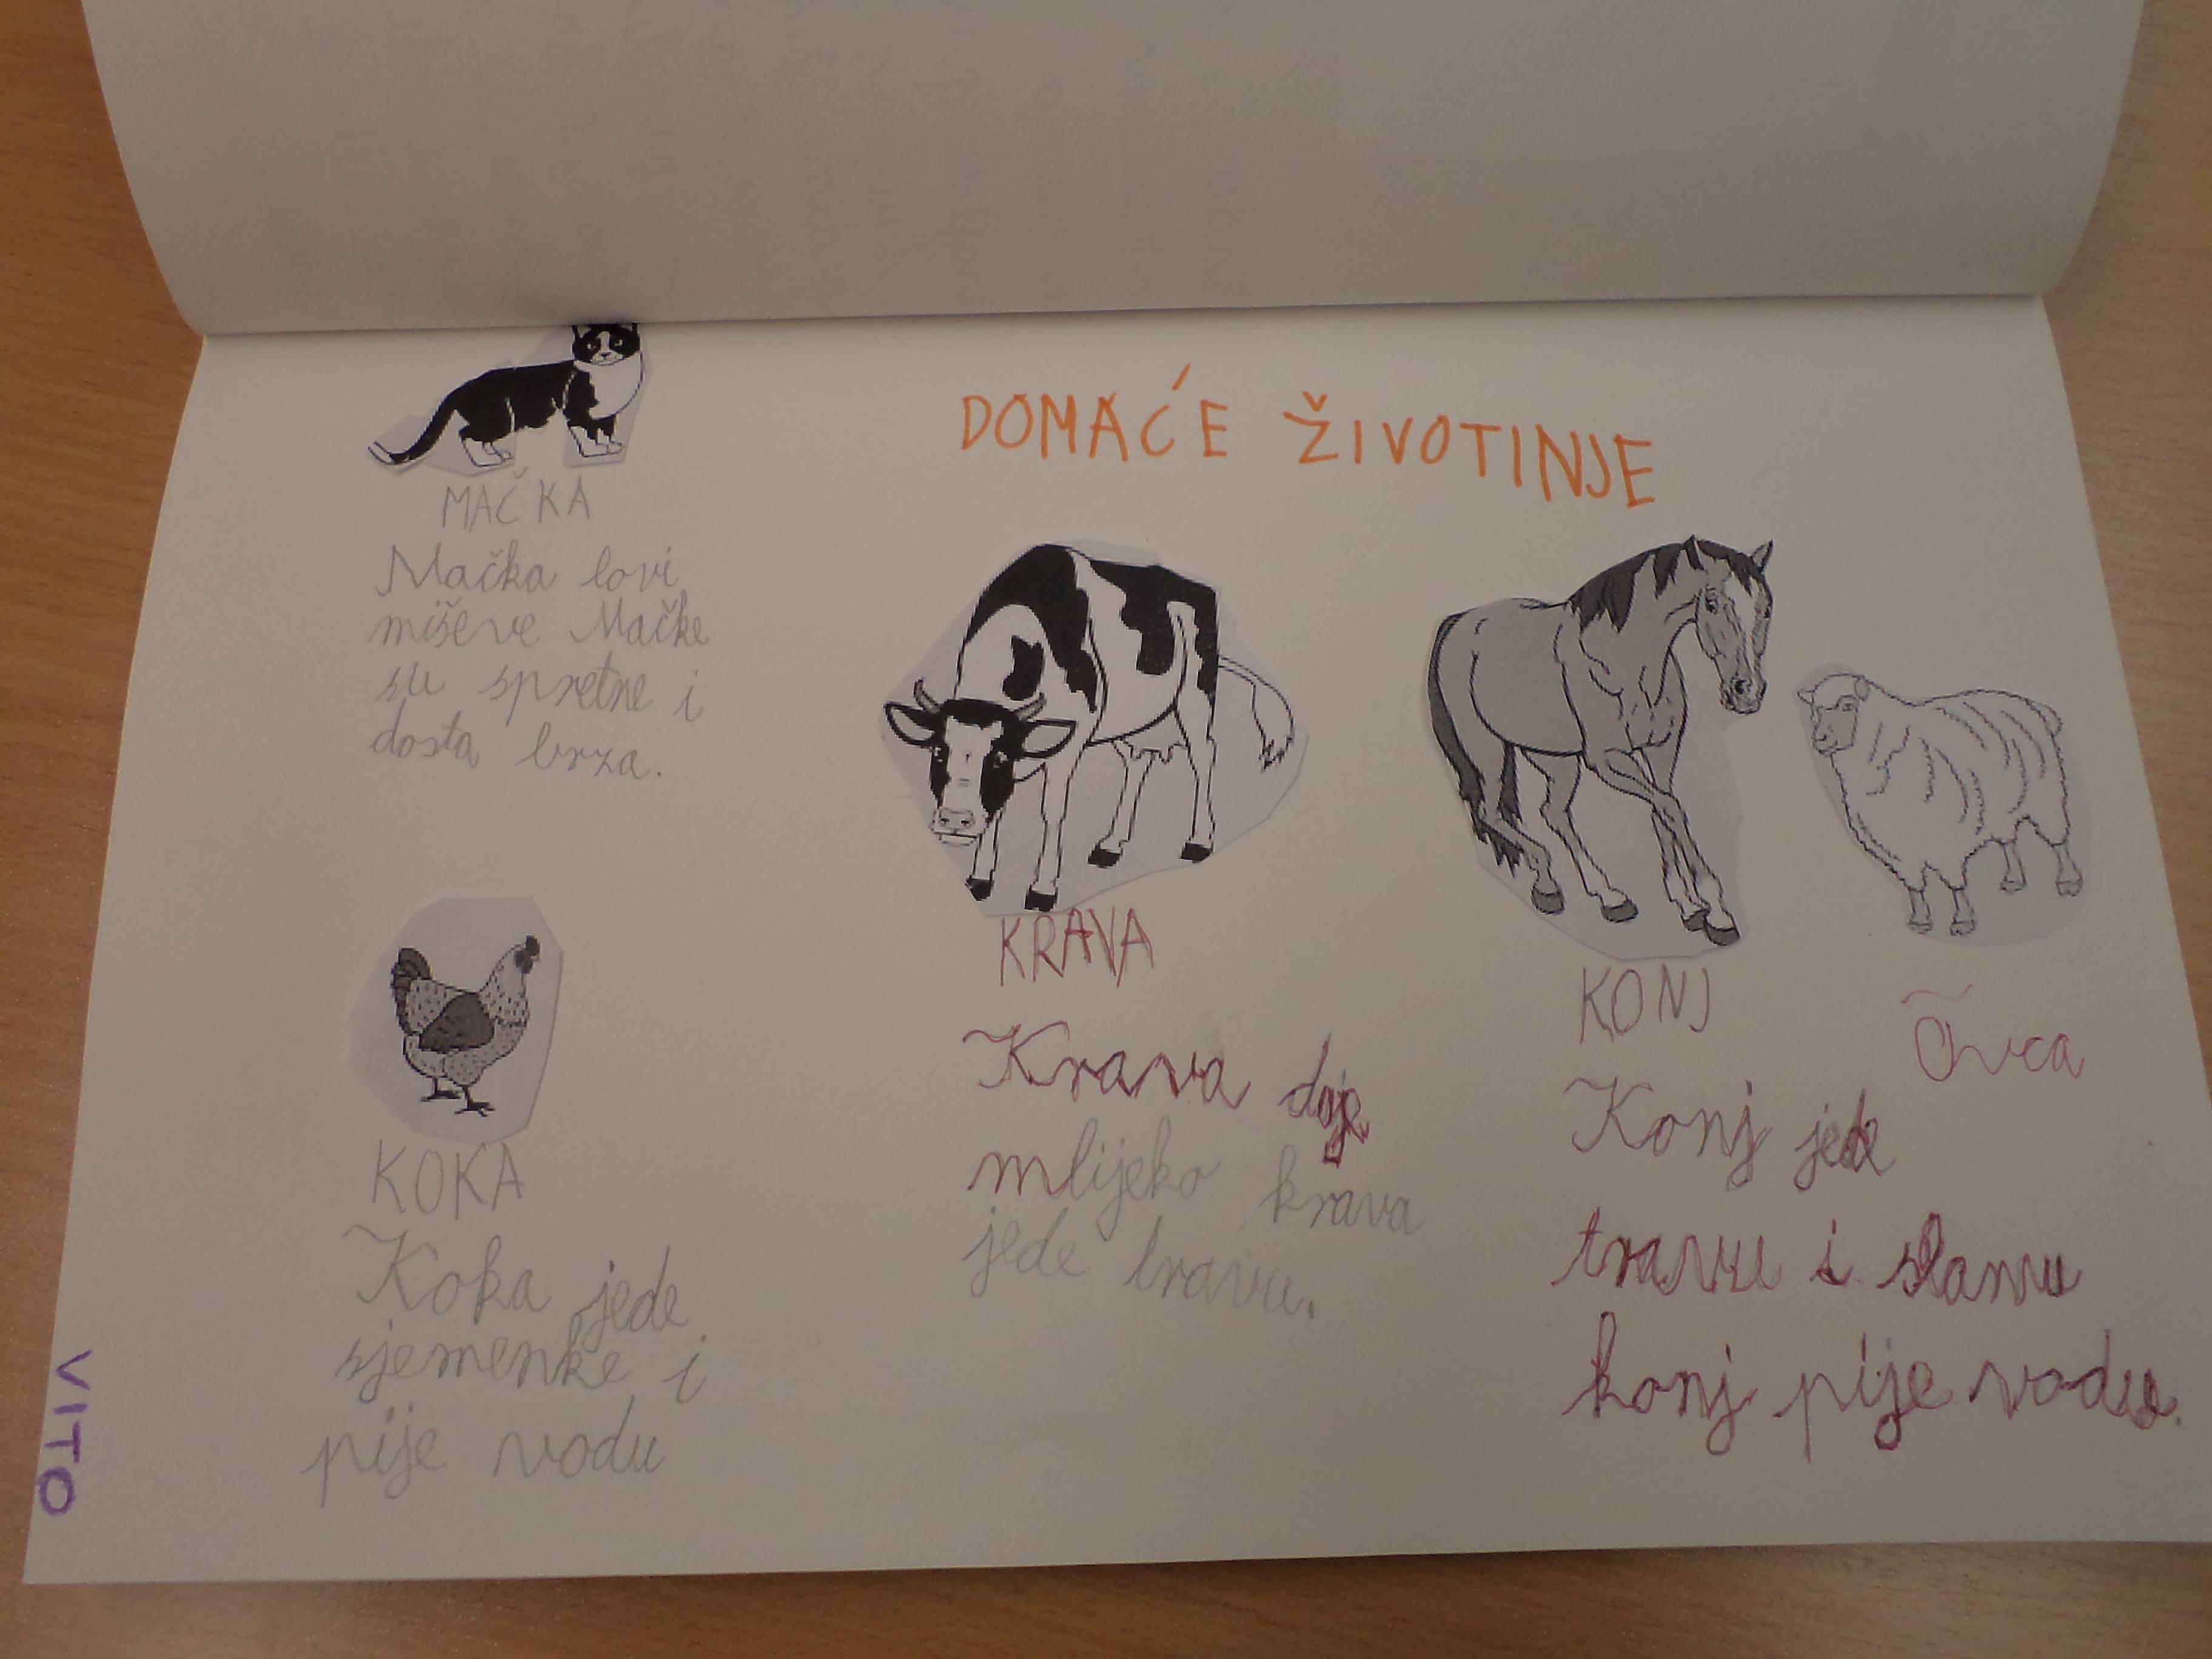 DOMAĆE ŽIVOTINJE
MAČKA
Mačka lovi
miševe Mačke
su spretne i
dosta brza.
KOKA
Koka jede
sjemenke i
pije vodu
KRAVA
Krava daje
mlijeko krava
jede travu.
KONJ
Konj jede
travu i slamu
konj pije vodu.
Ovca
VITO